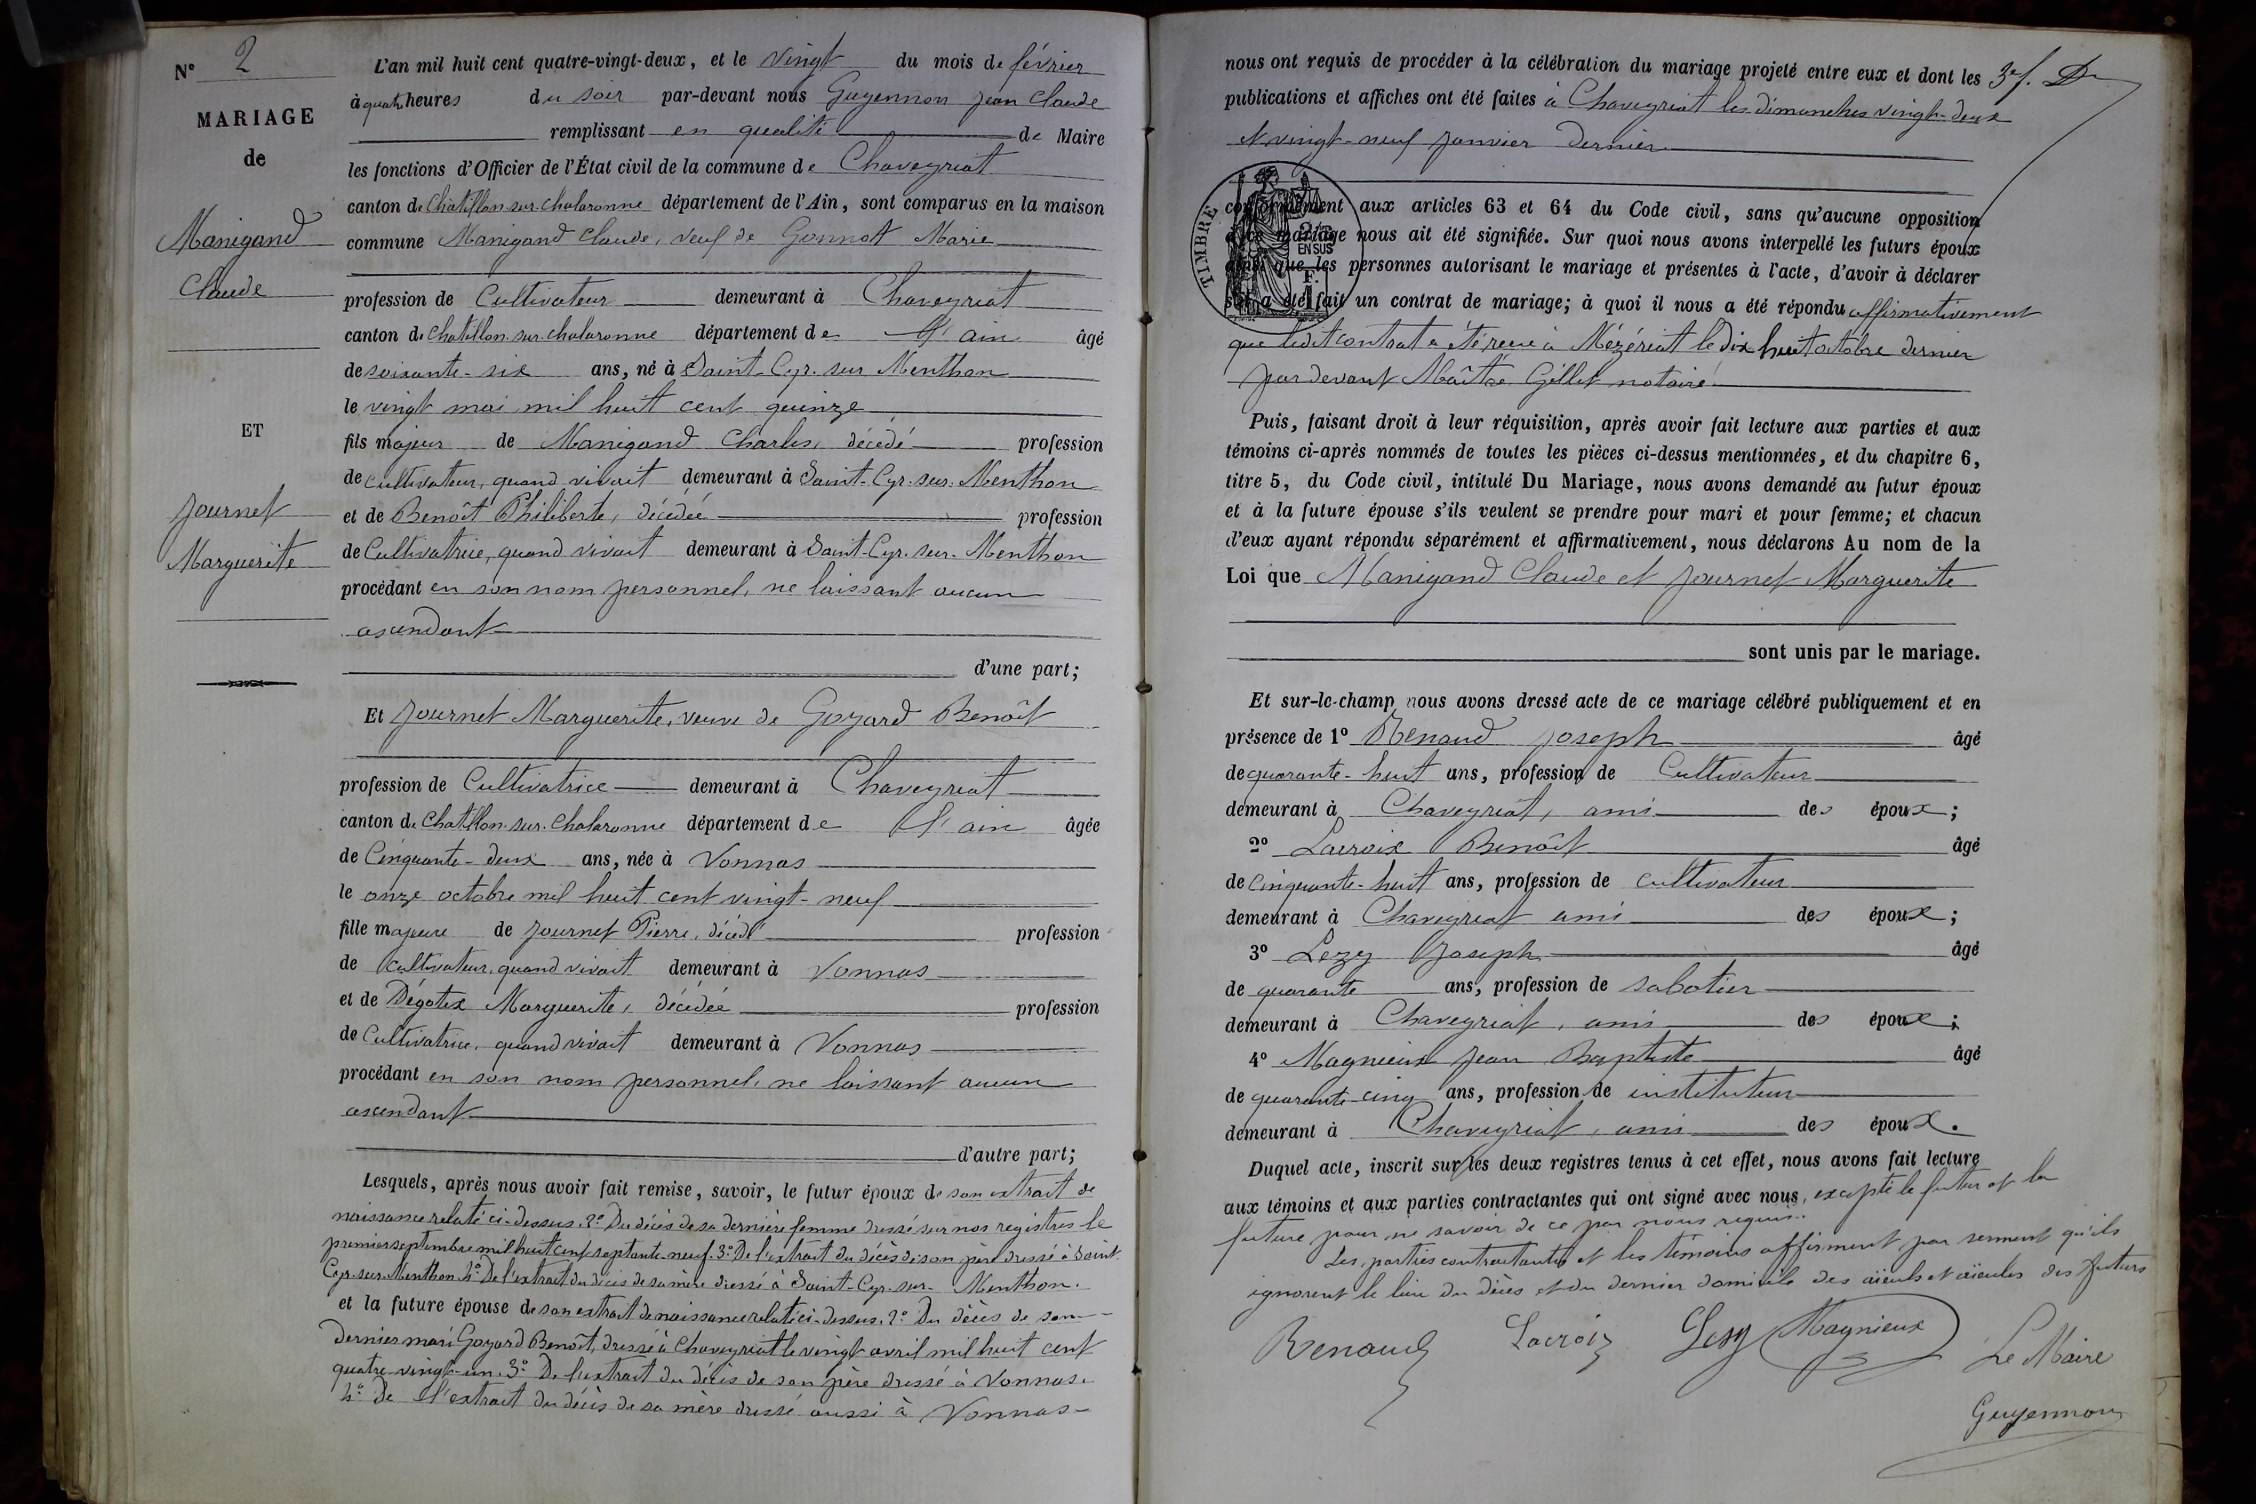 N° 2
MARIAGE
de
Manigand
Claude
ET
Journet
Marguerite
L'an mil huit cent quatre-vingt-deux, et le vingt du mois de février
à quatre heures du soir par-devant nous Guyennon Jean Claude
remplissant en qualité de Maire
les fonctions d'Officier de l'État civil de la commune de Chaveyriat
canton de Chatillon-sur-Chalaronne département de l'Ain, sont comparus en la maison
commune Manigand Claude, veuf de Gonnot Marie
profession de Cultivateur demeurant à Chaveyriat
canton de Chatillon-sur-Chalaronne département de l'ain âgé
de soixante-six ans, né à Saint-Cyr-sur Menthon
le vingt mai mil huit cent quinze
fils majeur de Manigand Charles, décédé profession
de cultivateur, quand vivait demeurant à Saint-Cyr-sur-Menthon
et de Benoît Philiberte, décédée profession
de Cultivatrice, quand vivait demeurant à Saint-Cyr-sur-Menthon
procédant en son nom personnel, ne laissant aucun
ascendant
d'une part;
Et Journet Marguerite, veuve de Goyard Benoît
profession de Cultivatrice demeurant à Chaveyriat
canton de Chatillon-sur-Chalaronne département de l'ain âgée
de Cinquante-deux ans, née à Vonnas
le onze octobre mil huit cent vingt-neuf
fille majeure de Journet Pierre, décédé profession
de cultivateur, quand vivait demeurant à Vonnas
et de Dégotex Marguerite, décédée profession
de Cultivatrice, quand vivait demeurant à Vonnas
procédant en son nom personnel, ne laissant aucun
ascendant
d'autre part;
Lesquels, après nous avoir fait remise, savoir, le futur époux de son extrait de
naissance relaté ci-dessus. 2° Du décès de sa dernière femme dressé sur nos registres le
premier septembre mil huit cent septante-neuf. 3° De l'extrait du décès de son père dressé à Saint-
Cyr-sur-Menthon. 4° De l'extrait du décès de sa mère dressé à Saint-Cyr-sur-Menthon.
et la future épouse de son extrait de naissance relaté ci-dessus. 2° Du décès de son
dernier mari Goyard Benoît, dressé à Chaveyriat le vingt avril mil huit cent
quatre-vingt-un. 3° De l'extrait du décès de son père dressé à Vonnas.
4° De l'extrait du décès de sa mère dressé aussi à Vonnas-
nous ont requis de procéder à la célébration du mariage projeté entre eux et dont les
publications et affiches ont été faites à Chaveyriat les dimanches vingt-deux
et vingt-neuf Janvier dernier
TIMBRE
EN SUS
conformément aux articles 63 et 64 du Code civil, sans qu'aucune opposition
à ce mariage nous ait été signifiée. Sur quoi nous avons interpellé les futurs époux
ainsi que les personnes autorisant le mariage et présentes à l'acte, d'avoir à déclarer
s'il a été fait un contrat de mariage; à quoi il nous a été répondu affirmativement
que ledit contrat a été reçu à Mézériat le dix huit octobre dernier
par devant Maître Gillet notaire
Puis, faisant droit à leur réquisition, après avoir fait lecture aux parties et aux
témoins ci-après nommés de toutes les pièces ci-dessus mentionnées, et du chapitre 6,
titre 5, du Code civil, intitulé Du Mariage, nous avons demandé au futur époux
et à la future épouse s'ils veulent se prendre pour mari et pour femme; et chacun
d'eux ayant répondu séparément et affirmativement, nous déclarons Au nom de la
Loi que Manigand Claude et Journet Marguerite
sont unis par le mariage.
Et sur-le-champ nous avons dressé acte de ce mariage célébré publiquement et en
présence de 1° Renaud Joseph âgé
de quarante-huit ans, profession de Cultivateur
demeurant à Chaveyriat, ami des époux;
2° Lacroix Benoît âgé
de cinquante-huit ans, profession de cultivateur
demeurant à Chaveyriat ami des époux;
3° Lezy Joseph âgé
de quarante ans, profession de sabotier
demeurant à Chaveyriat, ami des époux;
4° Magnieux Jean Baptiste âgé
de quarante-cinq ans, profession de instituteur
demeurant à Chaveyriat, ami des époux.
Duquel acte, inscrit sur les deux registres tenus à cet effet, nous avons fait lecture
aux témoins et aux parties contractantes qui ont signé avec nous, excepté le futur et la
future pour ne savoir de ce par nous requis.
Les parties contractantes et les témoins affirment par serment qu'ils
ignorent le lieu du décès et du dernier domicile des aïeuls et aïeules des futurs
Renaud Lacroix Lezy Magnieux Le Maire
Guyennon